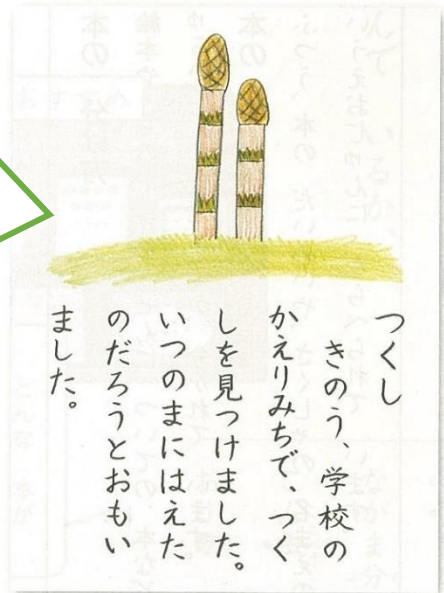 つくし
きのう、学校の
かえりみちで、つく
しを見つけました。
いつのまにはえた
のだろうとおもい
ました。